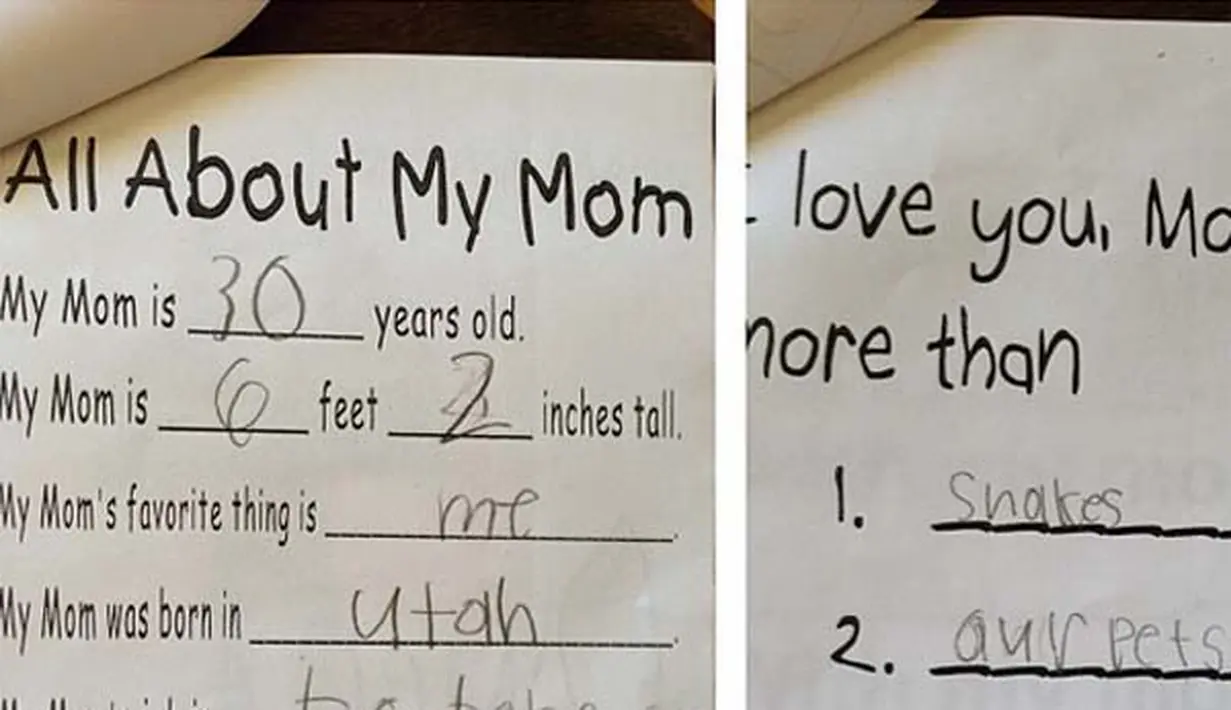 All About My Mom
My Mom is 30 years old.
My Mom is 6 feet 2 inches tall.
My Mom's favorite thing is me.
My Mom was born in utah.
to
love you, Mo
more than
1. Snakes
2. aur pets